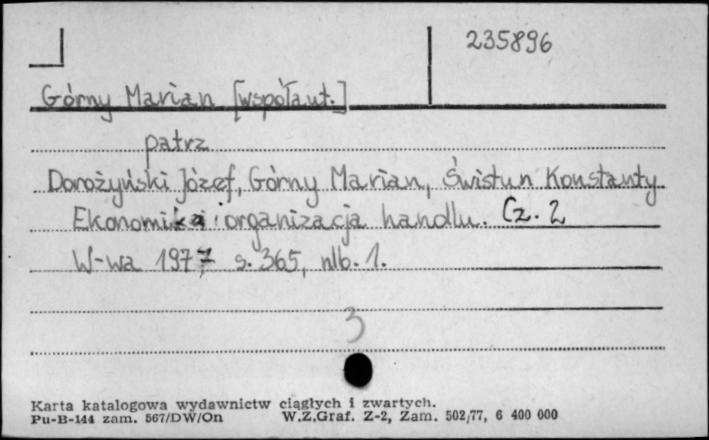 235896
Górny Marian [współaut.]
patrz
Dorożyński Józef, Górny Marian, Świstun Konstanty
Ekonomika i organizacja handlu. Cz. 2
W-wa 1977 s. 365, nlb. 1.
3
Karta katalogowa wydawnictw ciągłych i zwartych.
Pu-B-144 zam. 567/DW/On W.Z.Graf. Z-2, Zam. 502/77, 6 400 000